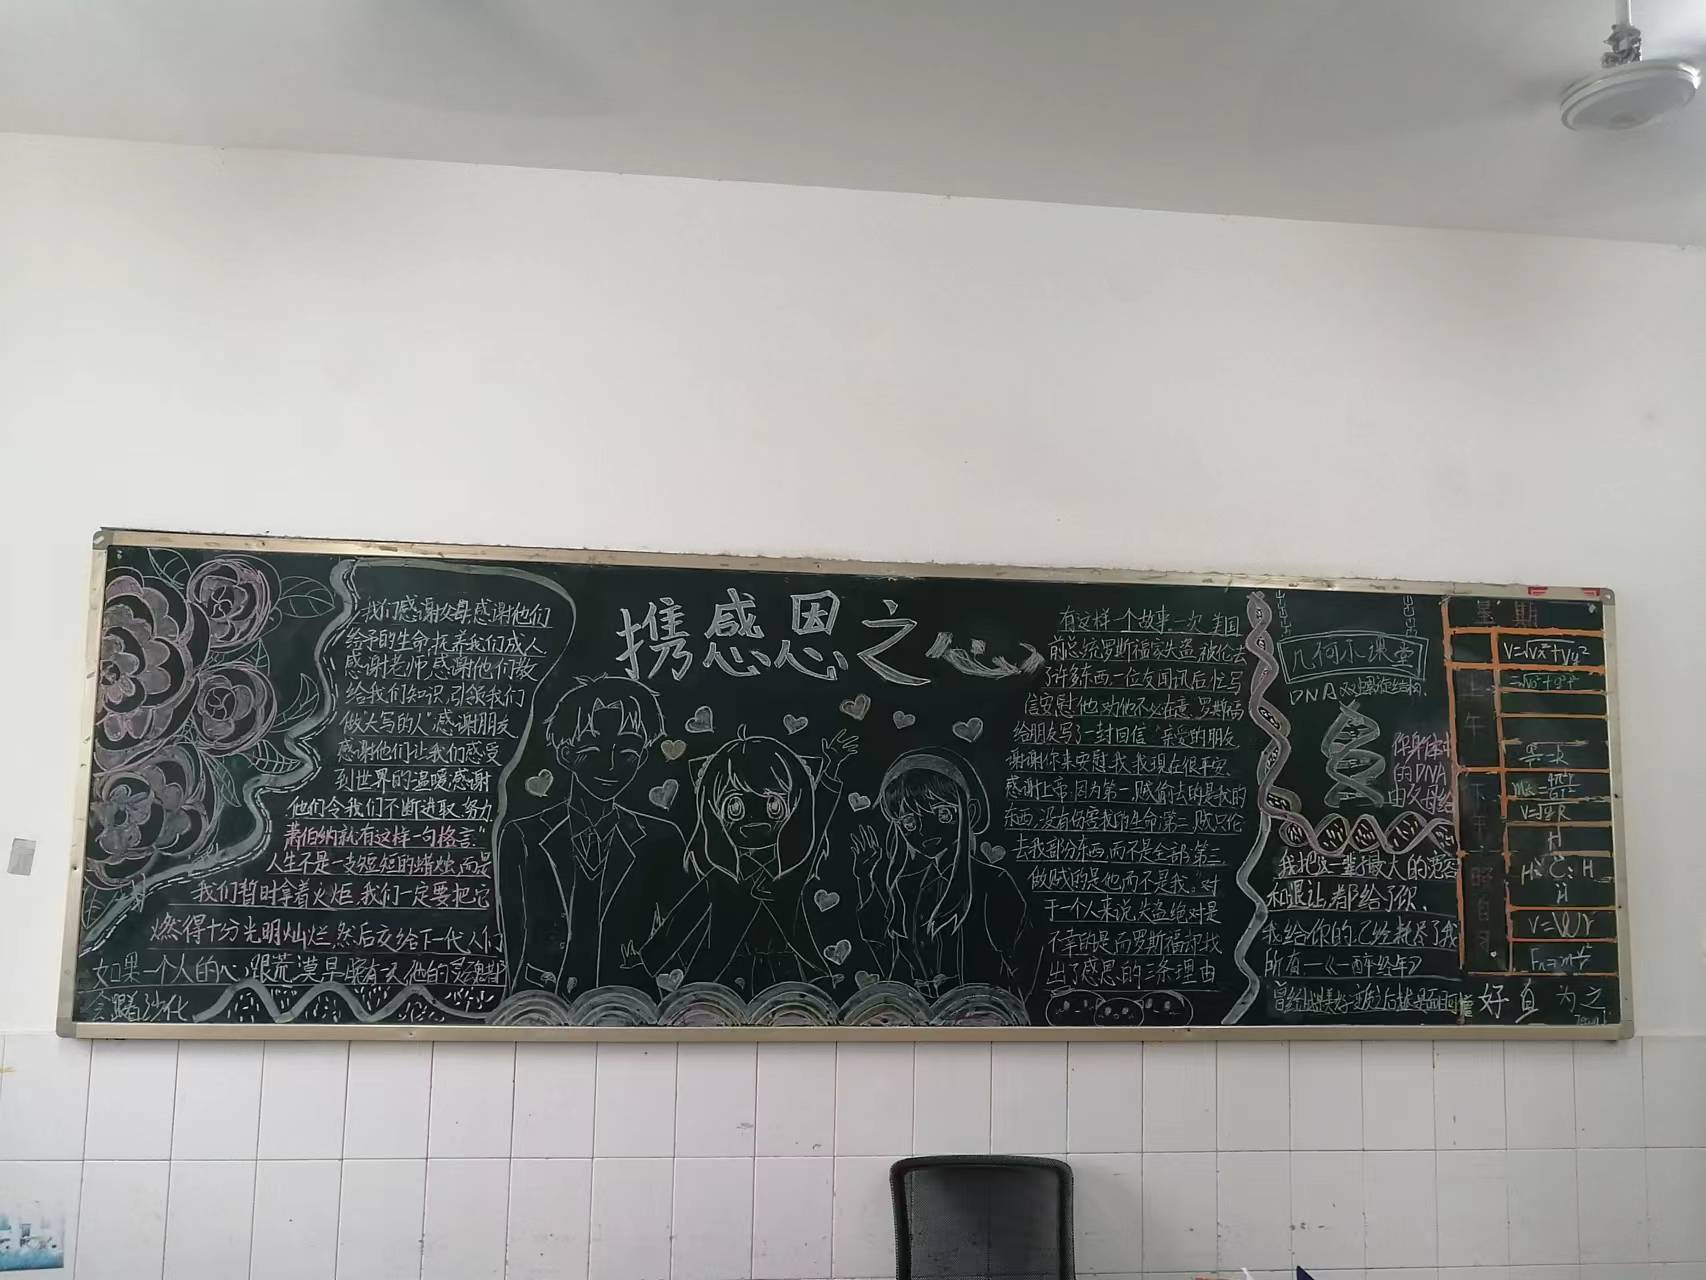 我们感谢父母,感谢他们
给予的生命,抚养我们成人
感谢老师,感谢他们教
给我们知识,引领我们
做"大写的人"感谢朋友
感谢他们让我们感受
到世界的温暖,感谢
他们令我们不断进取,努力
萧伯纳就有这样一句格言:"
人生不是一支短短的蜡烛,而是
我们暂时拿着火炬,我们一定要把它
燃得十分光明灿烂,然后交给下一代人们
如果一个人的心
会跟着沙化
携感恩之心
有这样一个故事一次,美国
前总统罗斯福家失盗,被偷去
了许多东西,一位友闻讯后忙写
信安慰他,劝他不必在意,罗斯福
给朋友写了一封回信"亲爱的朋友
谢谢你来安慰我,我现在很平安,
感谢上帝,因为第一,贼偷去的是我的
东西,没有伤害我的生命;第二,贼只偷
去我部分东西,而不是全部;第三
做贼的是他,而不是我。"对
于一个人来说,失盗绝对是
不幸的是,而罗斯福却找
出了感恩的三条理由
几何小课堂
DNA双螺旋结构.
你身体中
的DNA
由父母给
我把这一辈子最大的宽容
和退让,都给了你,
我给你的,已经耗尽了我
所有.
星期
上午
V=√Vx²+Vy²
下午
H
H:C:H
H
V=ωr
好自为之